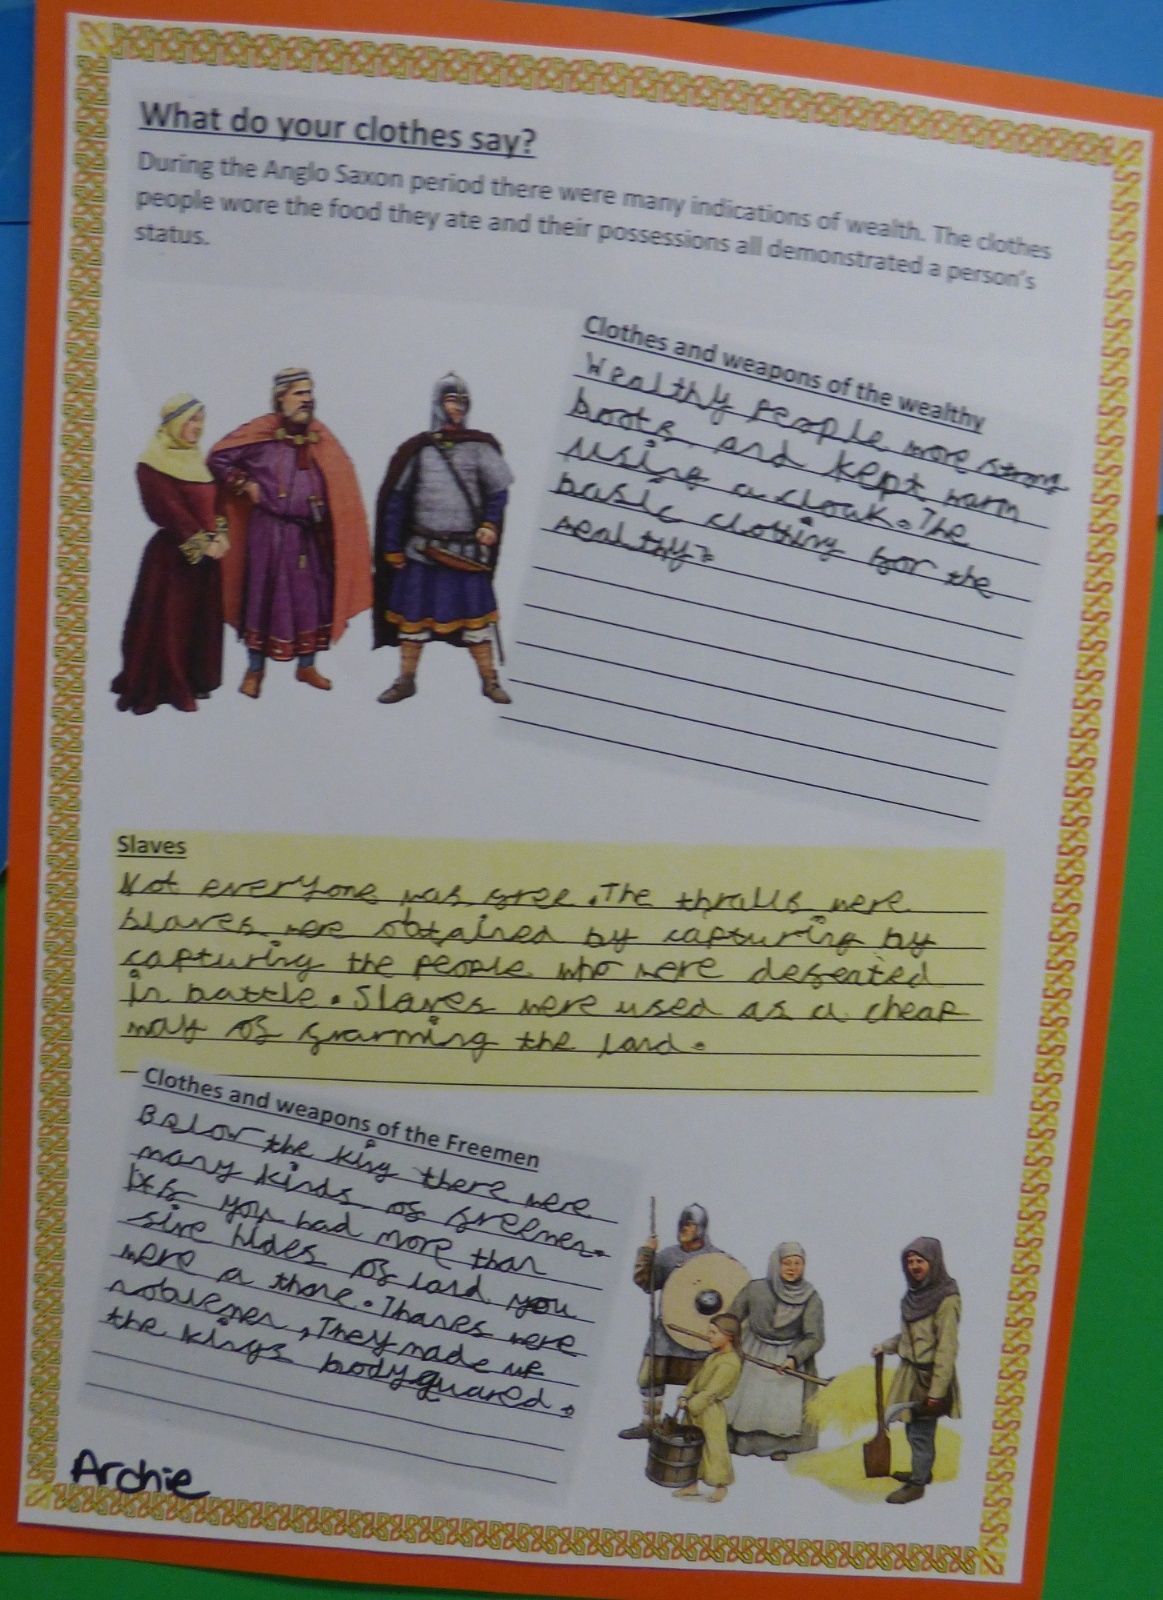 What do your clothes say?
During the Anglo Saxon period there were many indications of wealth. The clothes
people wore the food they ate and their possessions all demonstrated a person's
status.
Clothes and weapons of the wealthy
Wealthy people wore strong
boots, and kept warm
using a cloak. The
basic clothing for the
wealthy.
Slaves
Not everyone was free. The thralls were
slaves were obtained by capturing by
capturing the people who were defeated
in battle. Slaves were used as a cheap
way of farming the land.
Clothes and weapons of the Freemen
Below the king there were
many kinds of freemen.
If you had more than
five hides of land you
were a thane. Thanes were
noblemen, They made up
the kings bodyguared.
Archie